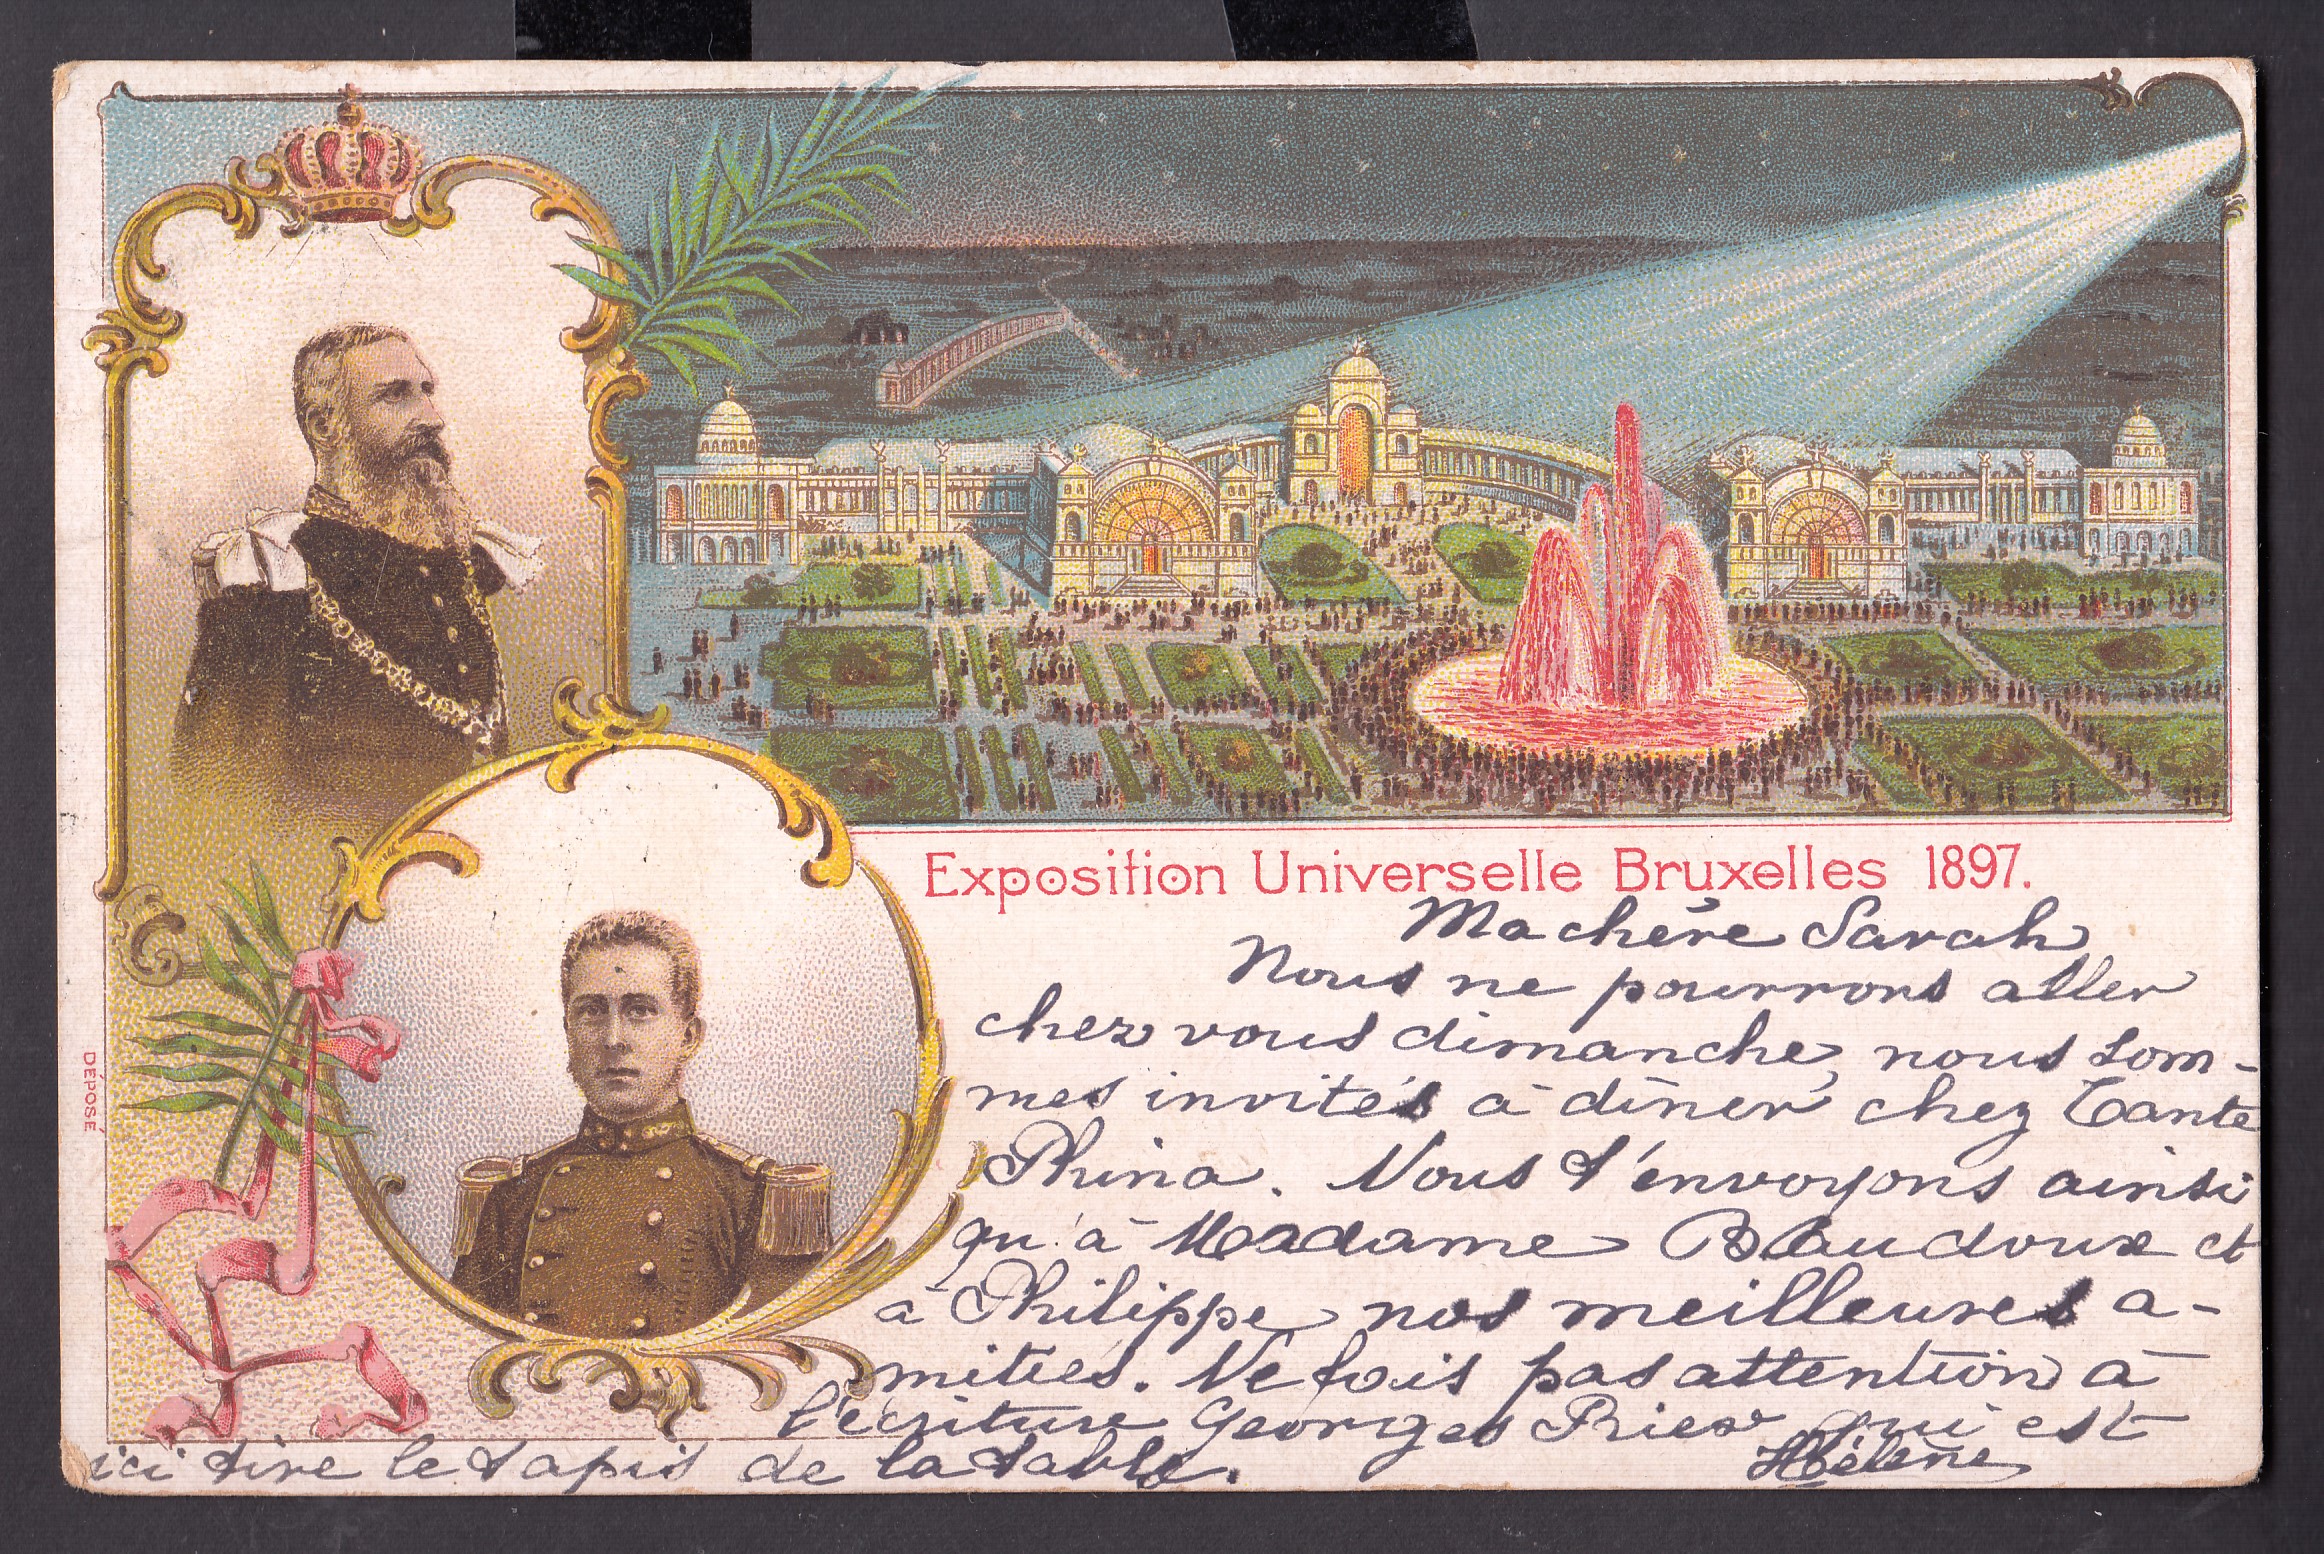 Exposition Universelle Bruxelles 1897.
Ma chère Sarah
Nous ne pourrons aller
chez vous dimanche, nous som-
mes invités à dîner chez Tante
Phina. Nous t'envoyons ainsi
qu'à Madame Baudoux et
à Philippe nos meilleures a-
mitiés. Ne fais pas attention à
l'écriture Georges Ries qui est
ici tire le tapis de la table.
Hélène
DÉPOSÉ